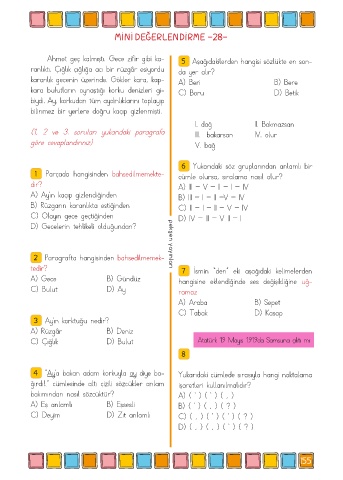 MİNİ DEĞERLENDİRME -28-
Ahmet geç kalmıştı. Gece zifir gibi ka-
ranlıktı. Çığlık çığlığa acı bir rüzgâr esiyordu
karanlık gecenin üzerinde. Gökler kara, kap-
kara bulutların oynaştığı korku denizleri gi-
biydi. Ay, korkudan tüm aydınlıklarını toplayıp
bilinmez bir yerlere doğru kaçıp gizlenmişti.
(1, 2 ve 3. soruları yukarıdaki paragrafa
göre cevaplandırınız)
1 Parçada hangisinden bahsedilmemekte-
dir?
A) Ay'ın kaçıp gizlendiğinden
B) Rüzgarın karanlıkta estiğinden
C) Olayın gece geçtiğinden
D) Gecelerin tehlikeli olduğundan?
2 Paragrafta hangisinden bahsedilmemek-
tedir?
A) Gece B) Gündüz
C) Bulut D) Ay
3 Ay'ın korktuğu nedir?
A) Rüzgâr B) Deniz
C) Çığlık D) Bulut
4 "Ay'a bakan adam korkuyla ay diye ba-
ğırdı!." cümlesinde altı çizili sözcükler anlam
bakımından nasıl sözcüktür?
A) Eş anlamlı B) Eşsesli
C) Deyim D) Zıt anlamlı
pelikan yayınları
5 Aşağıdakilerden hangisi sözlükte en son-
da yer alır?
A) Beri B) Bere
C) Boru D) Betik
I. dağ II. Bakmazsan
III. bakarsan IV. olur
V. bağ
6 Yukarıdaki söz gruplarından anlamlı bir
cümle olursa, sıralama nasıl olur?
A) III - V - II - I - IV
B) III - I - II -V - IV
C) II - I - III - V - IV
D) IV - III - V II - I
7 İsmin "den" eki aşağıdaki kelimelerden
hangisine eklendiğinde ses değişikliğine uğ-
ramaz
A) Araba B) Sepet
C) Tabak D) Kasap
Atatürk 19 Mayıs 1919da Samsuna çıktı mı
8
Yukarıdaki cümlede sırasıyla hangi noktalama
işaretleri kullanılmalıdır?
A) ( ' ) ( ' ) ( . )
B) ( ' ) ( . ) ( ? )
C) ( . ) ( ' ) ( ' ) ( ? )
D) ( . ) ( . ) ( ' ) ( ? )
155